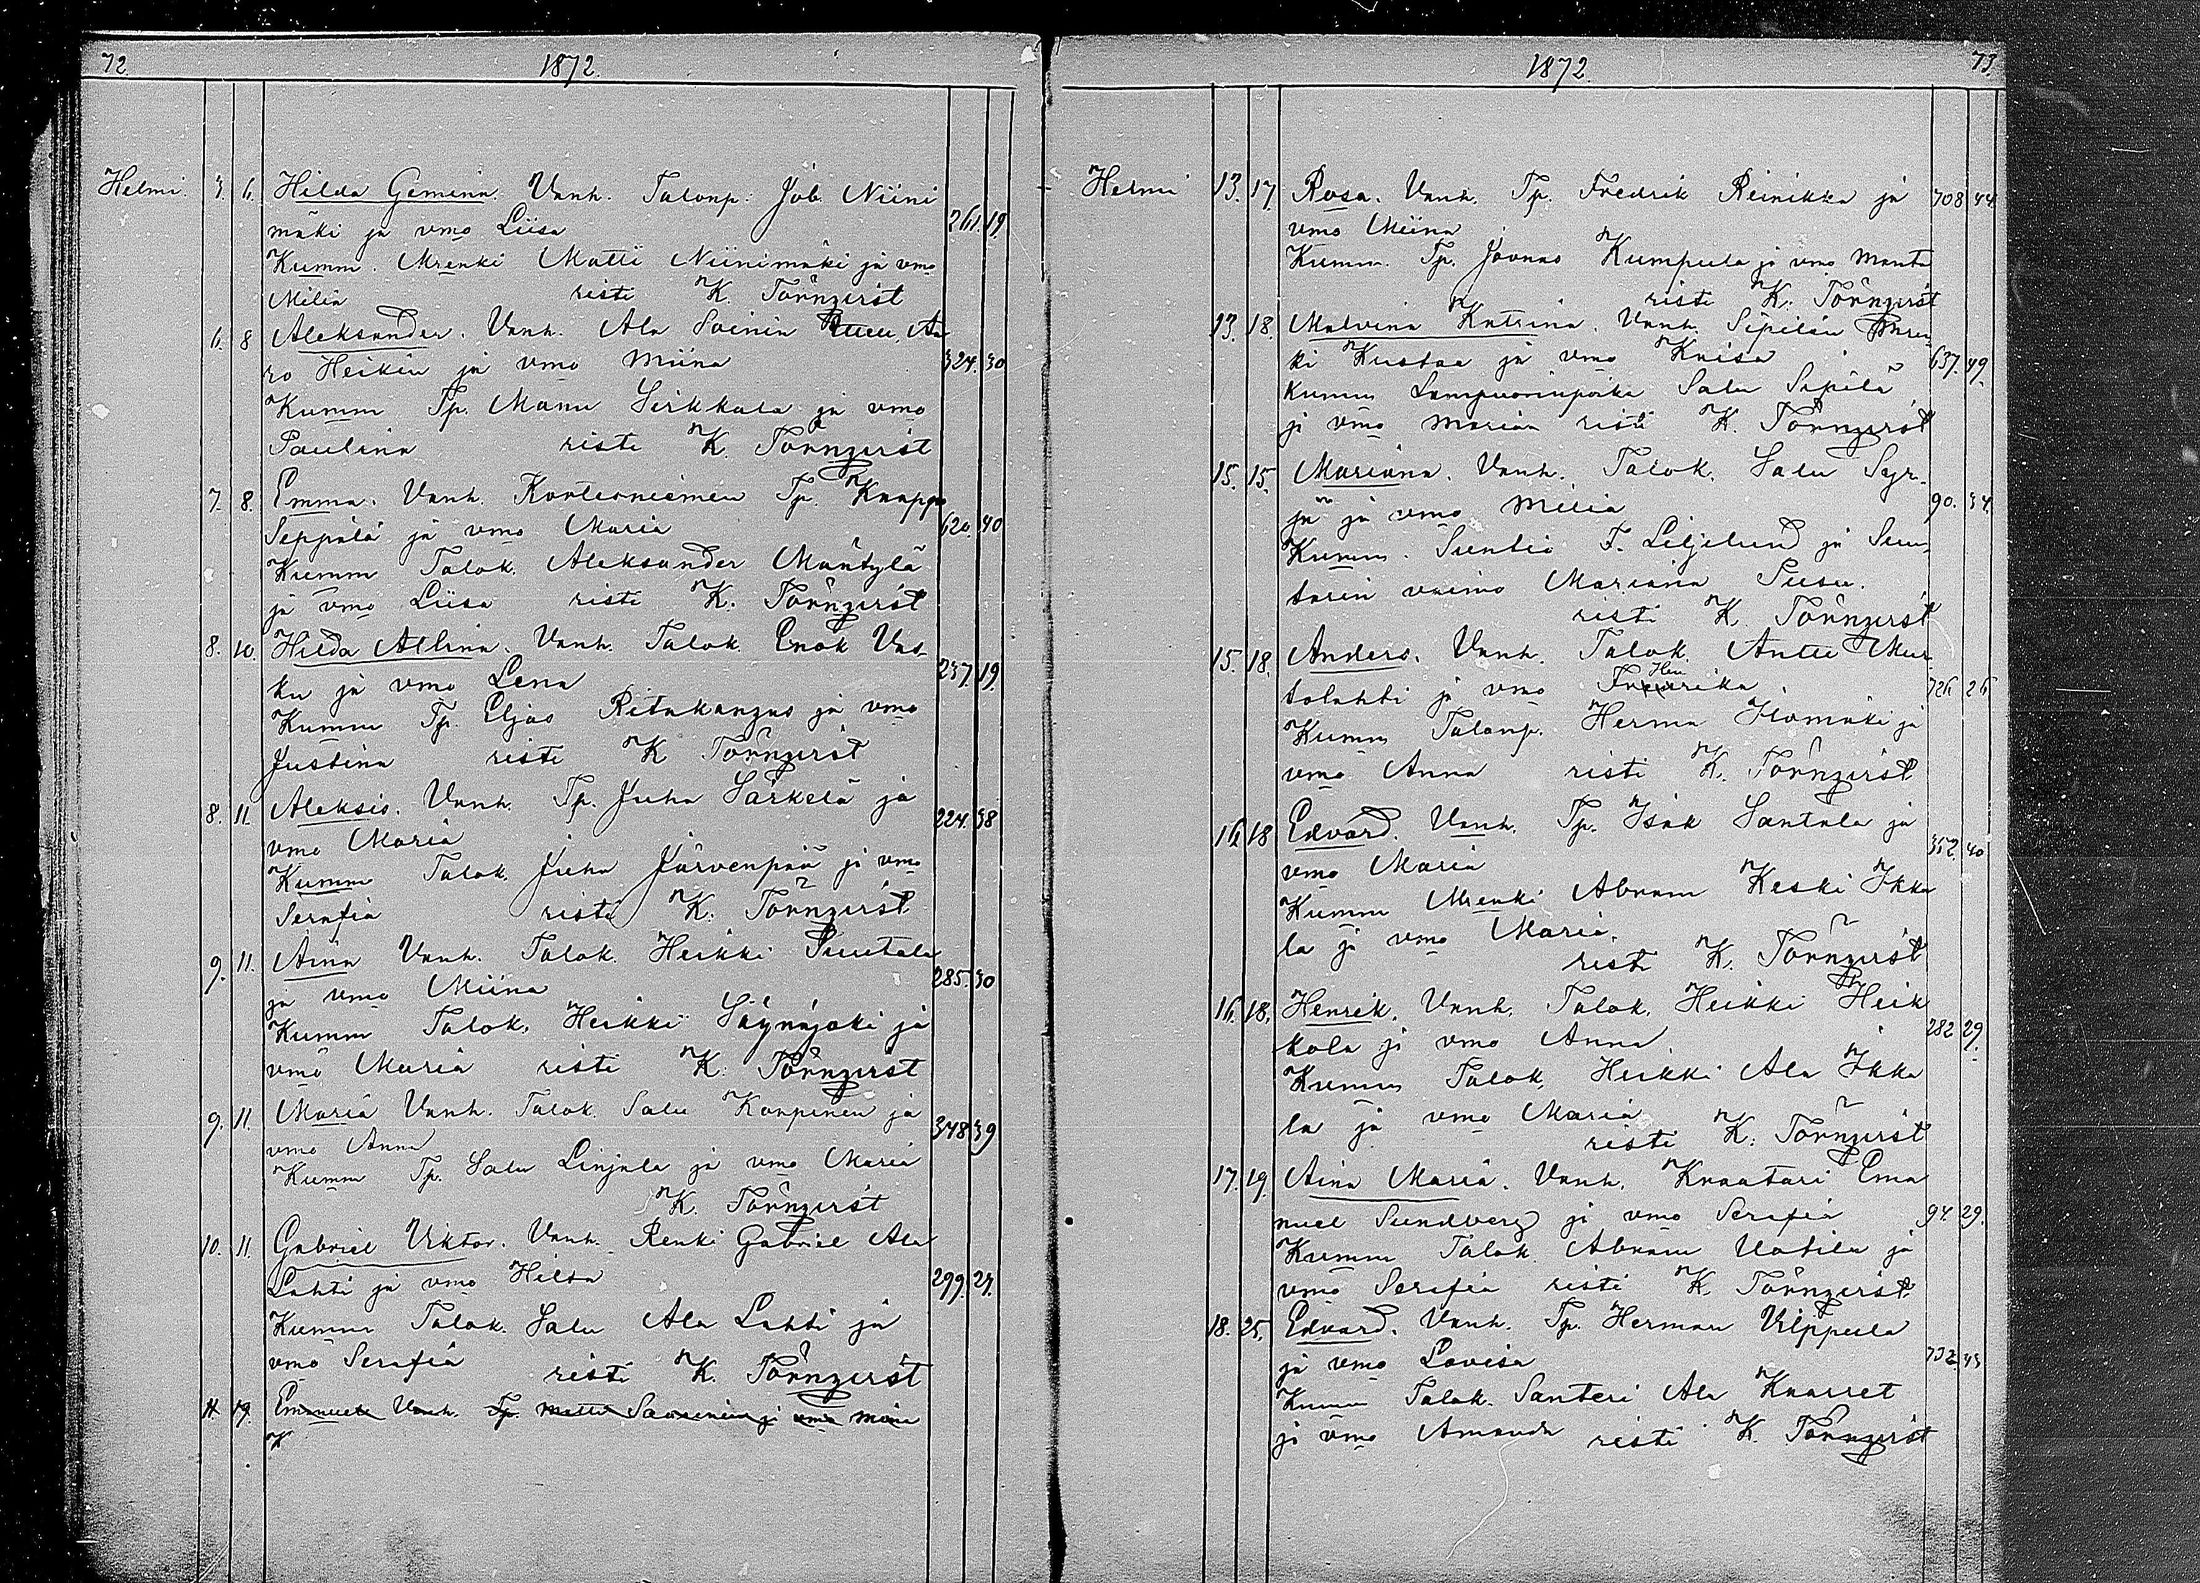 72.
1872.
Helmi. 3. 6. Hilda Gemina. Vanh. Talonp. Job. Niini
mäki ja vmo Liisa 261. 19.
Kumm. Mrenki Matti Niinimäki ja vmo
Milia risti K. Törnqvist
6. 8 Aleksander. Vanh. Ala Soinin
ro Heikin ja vmo Miina 324. 30
Kumm Tp. Manu Sirkkala ja vmo
Paulina risti K. Törnqvist
7. 8. Emma. Vanh. Kortesniemen Tp. Knaapo
Seppälä ja vmo Maria 620. 40
Kumm Talok. Aleksander Mäntylä
ja vmo Liisa risti K. Törnqvist
8. 10. Hilda Allina. Vanh. Talok. Enok Vas
ku ja vmo Lena 237. 19.
Kumm Tp. Eljas Ritakangas ja vmo
Justina risti K Törnqvist
8. 11. Aleksis. Vanh. Tp. Juha Särkelä ja
vmo Maria 224. 38
Kumm Talok. Juha Järvenpää ja vmo
Serafia risti K. Törnqvist
9. 11. Aina Vanh. Talok. Heikki Puutala
ja vmo Miina 285. 30
Kumm Talok. Heikki Säynäjoki ja
vmo Maria risti K. Törnqvist
9. 11. Maria Vanh. Talok. Salu Korpinen ja
vmo Anna 348 39
Kumm Tp. Salu Linjala ja vmo Maria
K. Törnqvist
10. 11. Gabriel Viktor. Vanh. Renki Gabriel Ala
Lahti ja vmo Hilda 299. 27.
Kumm Talok. Salu Ala Lahti ja
vmo Serafia risti K. Törnqvist
11. 19. Emanuela Vanh. Tp. Matti Savonen ja vmo Miina
K
1872.
73.
Helmi 13. 17. Rosa. Vanh. Tp. Fredrik Reinikka ja 708 44
vmo Miina
Kumm. Tp. Joonas Kumpula ja vmo Manta
risti K. Törnqvist
13. 18. Malvina Katrina. Vanh. Sipilän Mren
ki Kustaa ja vmo Kaisa 637. 49.
Kumm Lampuorinpoika Salu Sipilä
ja vmo Marian risti K. Törnqvist
15. 15. Mariana. Vanh. Talok. Salu Syr
jä ja vmo Milia 90. 34.
Kumm. Suntio F. Liljelund ja Sun
tarin vaimo Mariana
risti K Törnqvist
15. 18. Anders. Vanh. Talok. Antti Mur
tolahti ja vmo Fredrika 726 26
Kumm Talonp. Herma Ilomäki ja
vmo Anna risti K. Törnqvist
16. 18 Edvard. Vanh. Tp. Isak Santala ja
vmo Maria 352. 40
Kumm Mrenki Abram Keski Ikka
la ja vmo Maria.
risti K. Törnqvist
16. 18. Henrik. Vanh. Talok. Heikki Heik
kola ja vmo Anna 282 29.
Kumm Talok. Heikki Ala Ikka
la ja vmo Maria
risti K. Törnqvist
17. 19. Aina Maria. Vanh. Kraatari Ema
nuel Sundberg ja vmo Serafia 94. 29.
Kumm Talok. Abram Uotila ja
vmo Serafia risti K. Törnqvist
18. 25. Edvard. Vanh. Tp. Herman Vilppula
ja vmo Lovisa 732 43
Kumm Talok. Santeri Ala Knarret
ja vmo Amanda risti K Törnqvist